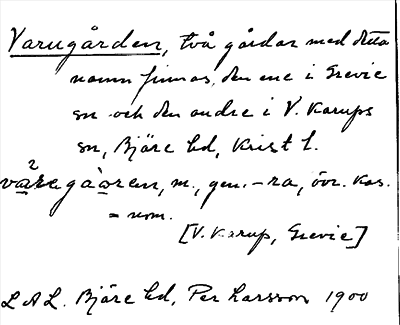 Varugården, två gårdar med detta
namn finnas, den ene i Grevie
sn och den andre i V. Karups
sn, Bjäre hd, Krist l.
gen. -ra, övr. kas.
= nom.
[V. Karup, Grevie]
L A L. Bjäre hd, Per Larsson 1900